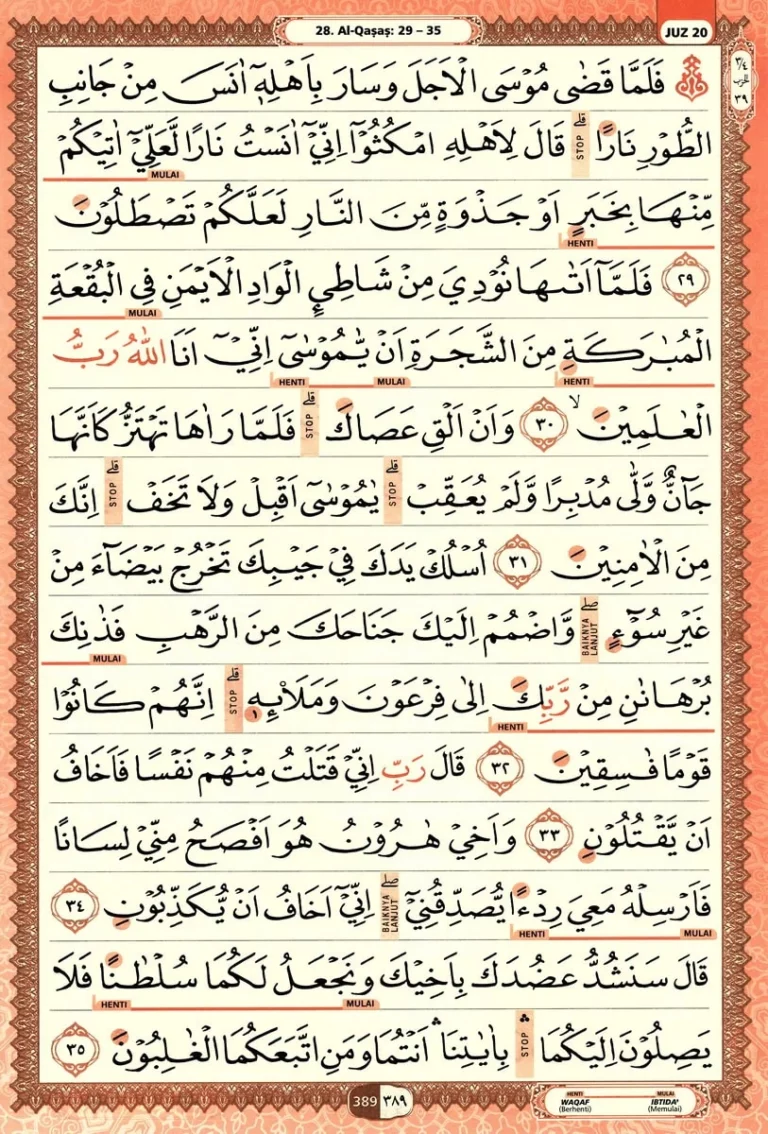 28. Al-Qaṣaṣ: 29 – 35
JUZ 20
٣/٤
الحزب
٣٩
۞ فَلَمَّا قَضٰى مُوْسَى الْاَجَلَ وَسَارَ بِاَهْلِهٖٓ اٰنَسَ مِنْ جَانِبِ
الطُّوْرِ نَارًاۗ STOP قَالَ لِاَهْلِهِ امْكُثُوْٓا اِنِّيْٓ اٰنَسْتُ نَارًا لَّعَلِّيْٓ اٰتِيْكُمْ
MULAI
مِّنْهَا بِخَبَرٍ اَوْ جَذْوَةٍ مِّنَ النَّارِ لَعَلَّكُمْ تَصْطَلُوْنَ
HENTI
٢٩ فَلَمَّآ اَتٰىهَا نُوْدِيَ مِنْ شَاطِئِ الْوَادِ الْاَيْمَنِ فِى الْبُقْعَةِ
MULAI
الْمُبٰرَكَةِ مِنَ الشَّجَرَةِ اَنْ يّٰمُوْسٰٓى اِنِّيْٓ اَنَا اللّٰهُ رَبُّ
HENTI MULAI HENTI
الْعٰلَمِيْنَ ۙ ٣٠ وَاَنْ اَلْقِ عَصَاكَۗ STOP فَلَمَّا رَاٰهَا تَهْتَزُّ كَاَنَّهَا
جَاۤنٌّ وَّلّٰى مُدْبِرًا وَّلَمْ يُعَقِّبْۗ STOP يٰمُوْسٰٓى اَقْبِلْ وَلَا تَخَفْۗ STOP اِنَّكَ
مِنَ الْاٰمِنِيْنَ ٣١ اُسْلُكْ يَدَكَ فِيْ جَيْبِكَ تَخْرُجْ بَيْضَاۤءَ مِنْ
غَيْرِ سُوْۤءٍۖ BAIKNYA LANJUT وَّاضْمُمْ اِلَيْكَ جَنَاحَكَ مِنَ الرَّهْبِ فَذٰنِكَ
MULAI
بُرْهَانٰنِ مِنْ رَّبِّكَ اِلٰى فِرْعَوْنَ وَمَلَا۟ىِٕهٖۗ ١ STOP اِنَّهُمْ كَانُوْا
HENTI
قَوْمًا فٰسِقِيْنَ ٣٢ قَالَ رَبِّ اِنِّيْ قَتَلْتُ مِنْهُمْ نَفْسًا فَاَخَافُ
اَنْ يَّقْتُلُوْنِ ٣٣ وَاَخِيْ هٰرُوْنُ هُوَ اَفْصَحُ مِنِّيْ لِسَانًا
فَاَرْسِلْهُ مَعِيَ رِدْءًا يُّصَدِّقُنِيْٓۖ BAIKNYA LANJUT اِنِّيْٓ اَخَافُ اَنْ يُّكَذِّبُوْنِ ٣٤
MULAI HENTI
قَالَ سَنَشُدُّ عَضُدَكَ بِاَخِيْكَ وَنَجْعَلُ لَكُمَا سُلْطٰنًا فَلَا
MULAI HENTI
يَصِلُوْنَ اِلَيْكُمَا ۛ STOP بِاٰيٰتِنَا ۛ اَنْتُمَا وَمَنِ اتَّبَعَكُمَا الْغٰلِبُوْنَ ٣٥
389 ٣٨٩
HENTI MULAI
WAQAF IBTIDA'
(Berhenti) (Memulai)